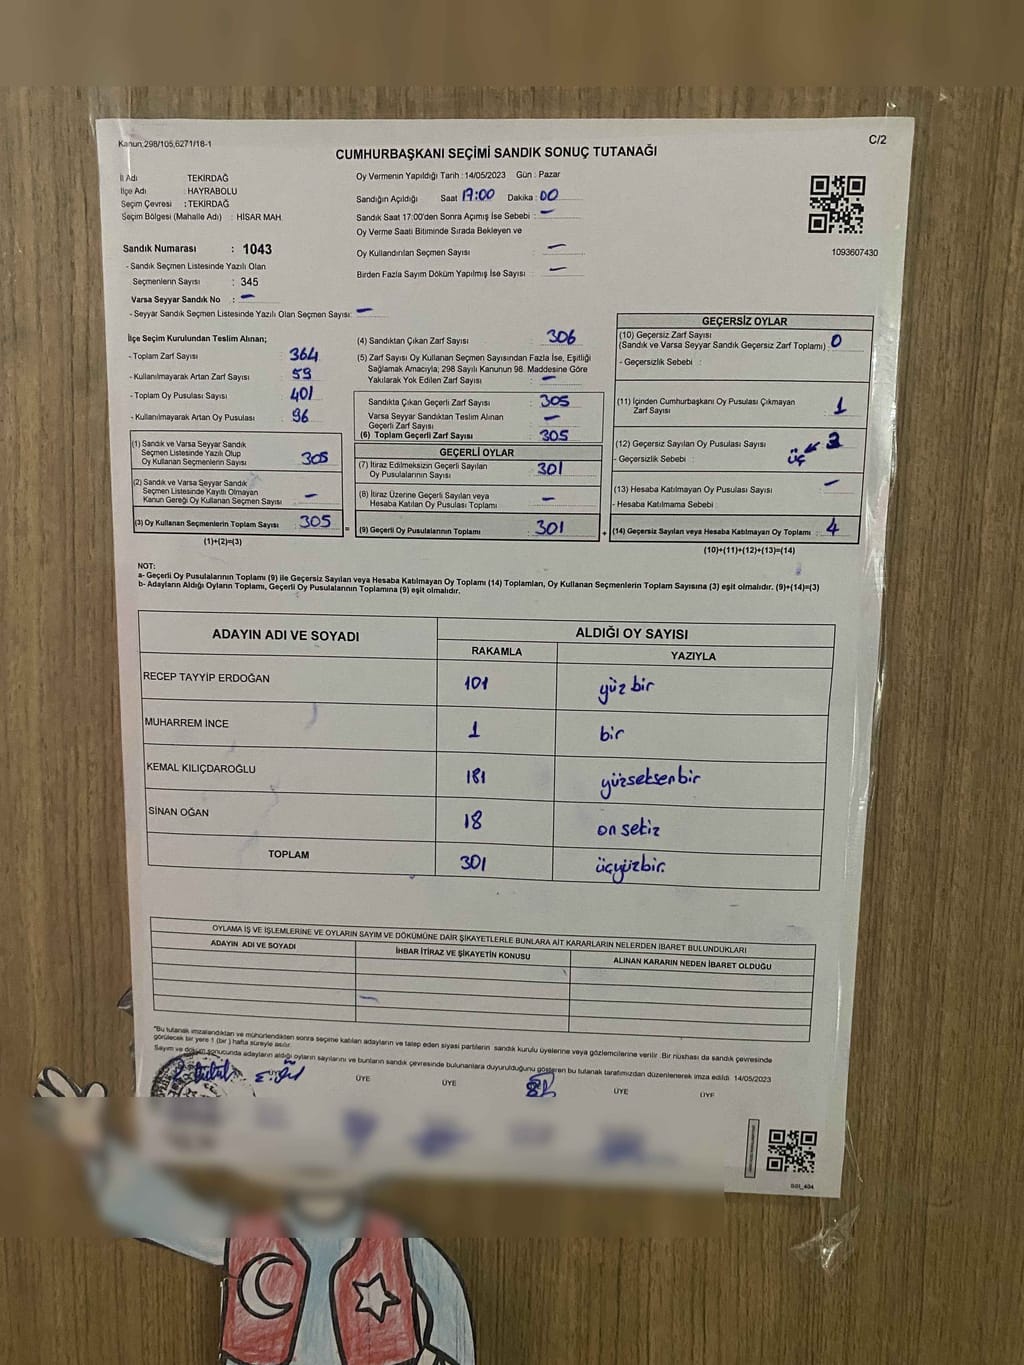 Kanun:298/105,6271/18-1
C/2
CUMHURBAŞKANI SEÇİMİ SANDIK SONUÇ TUTANAĞI
İl Adı TEKİRDAĞ
İlçe Adı : HAYRABOLU
Seçim Çevresi : TEKİRDAĞ
Seçim Bölgesi (Mahalle Adı) : HİSAR MAH.
Sandık Numarası : 1043
- Sandık Seçmen Listesinde Yazılı Olan
Seçmenlerin Sayısı : 345
Varsa Seyyar Sandık No : –
- Seyyar Sandık Seçmen Listesinde Yazılı Olan Seçmen Sayısı: –
Oy Vermenin Yapıldığı Tarih : 14/05/2023 Gün : Pazar
Sandığın Açıldığı Saat 17:00 Dakika : 00
Sandık Saat 17:00'den Sonra Açımış İse Sebebi : –
Oy Verme Saati Bitiminde Sırada Bekleyen ve
Oy Kullandırılan Seçmen Sayısı : –
Birden Fazla Sayım Döküm Yapılmış İse Sayısı : –
1093607430
İlçe Seçim Kurulundan Teslim Alınan;
- Toplam Zarf Sayısı : 364
- Kullanılmayarak Artan Zarf Sayısı : 59
- Toplam Oy Pusulası Sayısı : 401
- Kullanılmayarak Artan Oy Pusulası : 96
(1) Sandık ve Varsa Seyyar Sandık
Seçmen Listesinde Yazılı Olup
Oy Kullanan Seçmenlerin Sayısı : 305
(2) Sandık ve Varsa Seyyar Sandık
Seçmen Listesinde Kayıtlı Olmayan
Kanun Gereği Oy Kullanan Seçmen Sayısı : –
(3) Oy Kullanan Seçmenlerin Toplam Sayısı : 305
(1)+(2)=(3)
(4) Sandıktan Çıkan Zarf Sayısı : 306
(5) Zarf Sayısı Oy Kullanan Seçmen Sayısından Fazla İse, Eşitliği
Sağlamak Amacıyla; 298 Sayılı Kanunun 98. Maddesine Göre
Yakılarak Yok Edilen Zarf Sayısı : –
Sandıkta Çıkan Geçerli Zarf Sayısı : 305
Varsa Seyyar Sandıktan Teslim Alınan
Geçerli Zarf Sayısı : –
(6) Toplam Geçerli Zarf Sayısı : 305
GEÇERLİ OYLAR
(7) İtiraz Edilmeksizin Geçerli Sayılan
Oy Pusulalarının Sayısı : 301
(8) İtiraz Üzerine Geçerli Sayılan veya
Hesaba Katılan Oy Pusulası Toplamı : –
= (9) Geçerli Oy Pusulalarının Toplamı : 301
GEÇERSİZ OYLAR
(10) Geçersiz Zarf Sayısı
(Sandık ve Varsa Seyyar Sandık Geçersiz Zarf Toplamı) : 0
- Geçersizlik Sebebi :
(11) İçinden Cumhurbaşkanı Oy Pusulası Çıkmayan
Zarf Sayısı : 1
(12) Geçersiz Sayılan Oy Pusulası Sayısı : 3
- Geçersizlik Sebebi : üç
(13) Hesaba Katılmayan Oy Pusulası Sayısı : –
- Hesaba Katılmama Sebebi :
+ (14) Geçersiz Sayılan veya Hesaba Katılmayan Oy Toplamı : 4
(10)+(11)+(12)+(13)=(14)
NOT:
a- Geçerli Oy Pusulalarının Toplamı (9) ile Geçersiz Sayılan veya Hesaba Katılmayan Oy Toplamı (14) Toplamları, Oy Kullanan Seçmenlerin Toplam Sayısına (3) eşit olmalıdır. (9)+(14)=(3)
b- Adayların Aldığı Oyların Toplamı, Geçerli Oy Pusulalarının Toplamına (9) eşit olmalıdır.
ADAYIN ADI VE SOYADI ALDIĞI OY SAYISI
RAKAMLA YAZIYLA
RECEP TAYYİP ERDOĞAN 101 yüz bir
MUHARREM İNCE 1 bir
KEMAL KILIÇDAROĞLU 181 yüzseksenbir
SİNAN OĞAN 18 on sekiz
TOPLAM 301 üçyüzbir.
OYLAMA İŞ VE İŞLEMLERİNE VE OYLARIN SAYIM VE DÖKÜMÜNE DAİR ŞİKAYETLERLE BUNLARA AİT KARARLARIN NELERDEN İBARET BULUNDUKLARI
ADAYIN ADI VE SOYADI İHBAR İTİRAZ VE ŞİKAYETİN KONUSU ALINAN KARARIN NEDEN İBARET OLDUĞU
*Bu tutanak imzalandıktan ve mühürlendikten sonra seçime katılan adayların ve talep eden siyasi partilerin sandık kurulu üyelerine veya gözlemcilerine verilir .Bir nüshası da sandık çevresinde
görülecek bir yere 1 (bir ) hafta süreyle asılır.
Sayım ve döküm sonucunda adayların aldığı oyların sayılarını ve bunların sandık çevresinde bulunanlara duyurulduğunu gösteren bu tutanak tarafımızdan düzenlenerek imza edildi. 14/05/2023
ÜYE ÜYE ÜYE ÜYE